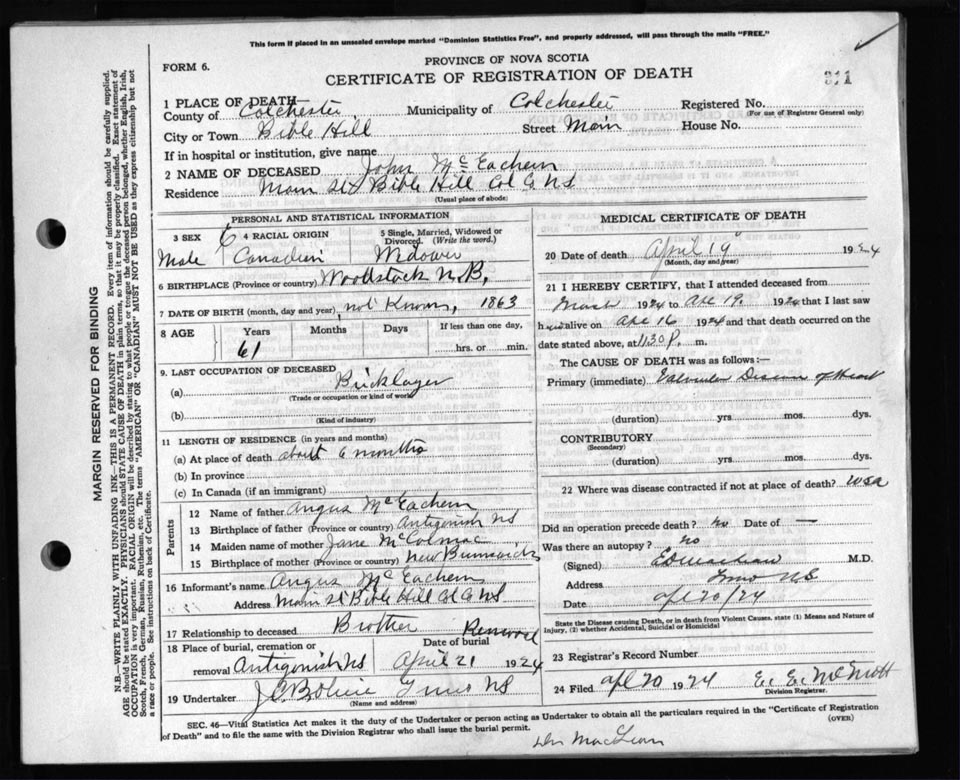 This form if placed in an unsealed envelope marked "Dominion Statistics Free", and properly addressed, will pass through the mails "FREE."
FORM 6.
PROVINCE OF NOVA SCOTIA
CERTIFICATE OF REGISTRATION OF DEATH
311
1 PLACE OF DEATH
County of Colchester Municipality of Colchester Registered No.
(For use of Registrar General only)
City or Town Bible Hill Street Main House No.
If in hospital or institution, give name
2 NAME OF DECEASED John McEachern
Residence Main St Bible Hill Col Co NS
(Usual place of abode)
PERSONAL AND STATISTICAL INFORMATION
3 SEX 4 RACIAL ORIGIN 5 Single, Married, Widowed or Divorced. (Write the word.)
Male Canadian Widower
6 BIRTHPLACE (Province or country) Woodstock N.B,
7 DATE OF BIRTH (month, day and year) not Known, 1863
8 AGE Years Months Days If less than one day,
61 hrs. or min.
9. LAST OCCUPATION OF DECEASED
(a) Bricklayer
(Trade or occupation or kind of work)
(b)
(Kind of industry)
11 LENGTH OF RESIDENCE (in years and months)
(a) At place of death about 6 months
(b) In province
(c) In Canada (if an immigrant)
Parents
12 Name of father Angus McEachern
13 Birthplace of father (Province or country) Antigonish NS
14 Maiden name of mother Jane McColmac
15 Birthplace of mother (Province or country) New Brunswick
16 Informant's name Angus McEachern
Address Main St Bible Hill Col Co NS
17 Relationship to deceased Brother
18 Place of burial, cremation or removal Antigonish NS
Removal
Date of burial April 21 1924
19 Undertaker Truro NS
(Name and address)
MEDICAL CERTIFICATE OF DEATH
20 Date of death April 19 1924
(Month, day and year)
21 I HEREBY CERTIFY, that I attended deceased from
March 1924 to Apl 19, 1924 that I last saw
him alive on Apl 16 1924 and that death occurred on the
date stated above, at 11 30 P. m.
The CAUSE OF DEATH was as follows:—
Primary (immediate) Valvular Disease of Heart
(duration) yrs mos. dys.
CONTRIBUTORY
(Secondary)
(duration) yrs. mos. dys.
22 Where was disease contracted if not at place of death? USA
Did an operation precede death? no Date of —
Was there an autopsy? no
(Signed) M.D.
Address Truro NS
Date Apl 20/24
State the Disease causing Death, or in death from Violent Causes, state (1) Means and Nature of Injury, (2) whether Accidental, Suicidal or Homicidal
23 Registrar's Record Number
24 Filed Apl 20 1924 E. E. McNutt
Division Registrar.
SEC. 46—Vital Statistics Act makes it the duty of the Undertaker or person acting as Undertaker to obtain all the particulars required in the "Certificate of Registration
of Death" and to file the same with the Division Registrar who shall issue the burial permit.
(OVER)
Dr MacLean
MARGIN RESERVED FOR BINDING
N.B.—WRITE PLAINLY WITH UNFADING INK—THIS IS A PERMANENT RECORD. Every item of information should be carefully supplied.
AGE should be stated EXACTLY. PHYSICIANS should STATE CAUSE OF DEATH in plain terms, so that it may be properly classified. Exact statement of
OCCUPATION is very important. RACIAL ORIGIN will be described by stating to what people or tongue the deceased person belonged, whether English, Irish,
Scotch, French, German, Russian, Ruthenian, etc. The terms "AMERICAN" OR "CANADIAN" MUST NOT BE USED as they express citizenship but not
a race or people. See instructions on back of Certificate.